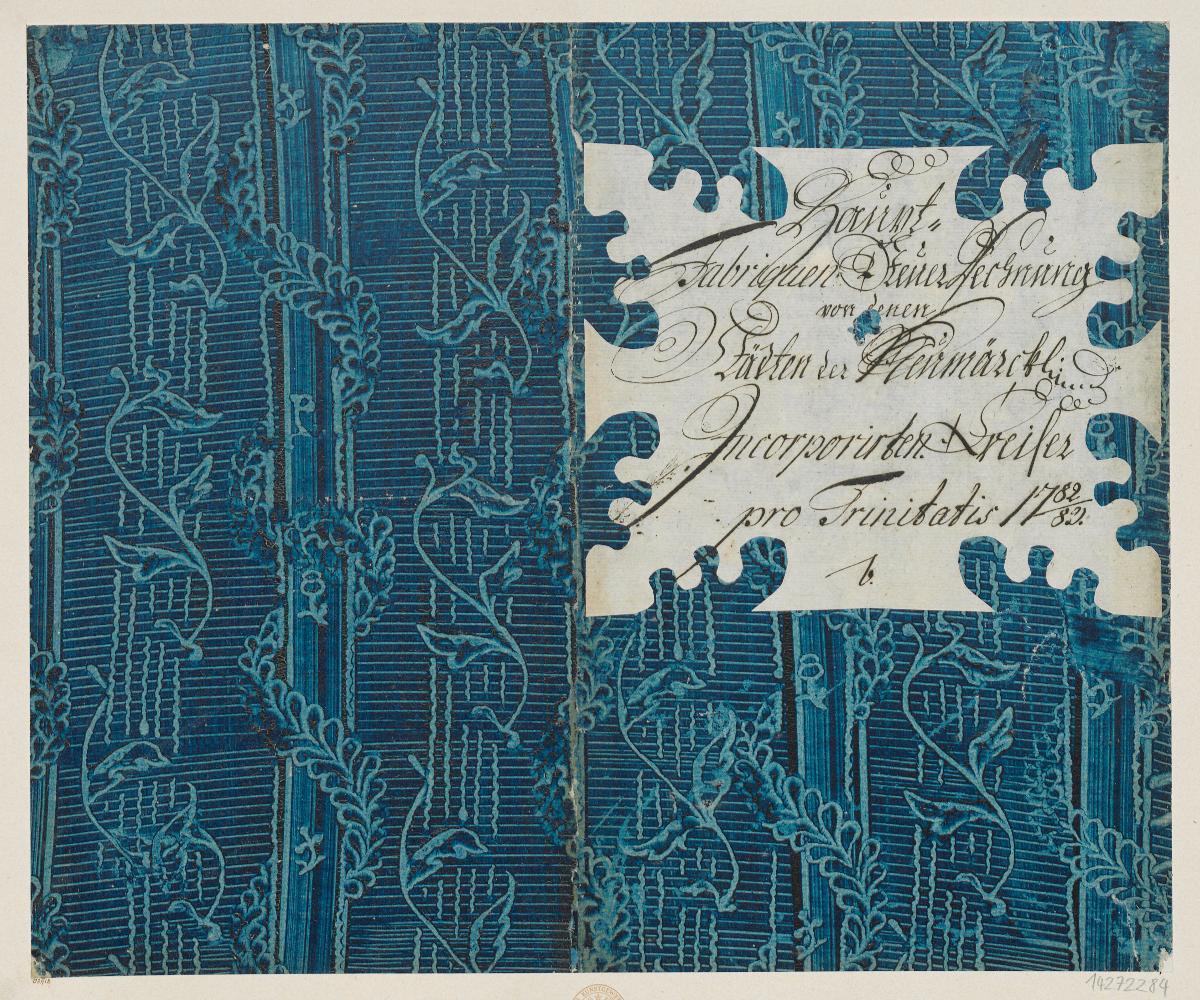 Haupt-
Fabriquen Steuer Rechnung
von denen
Städten der Neumärckl.
Incorporirten Kreiser
pro Trinitatis 1782/83.
b.
14272284